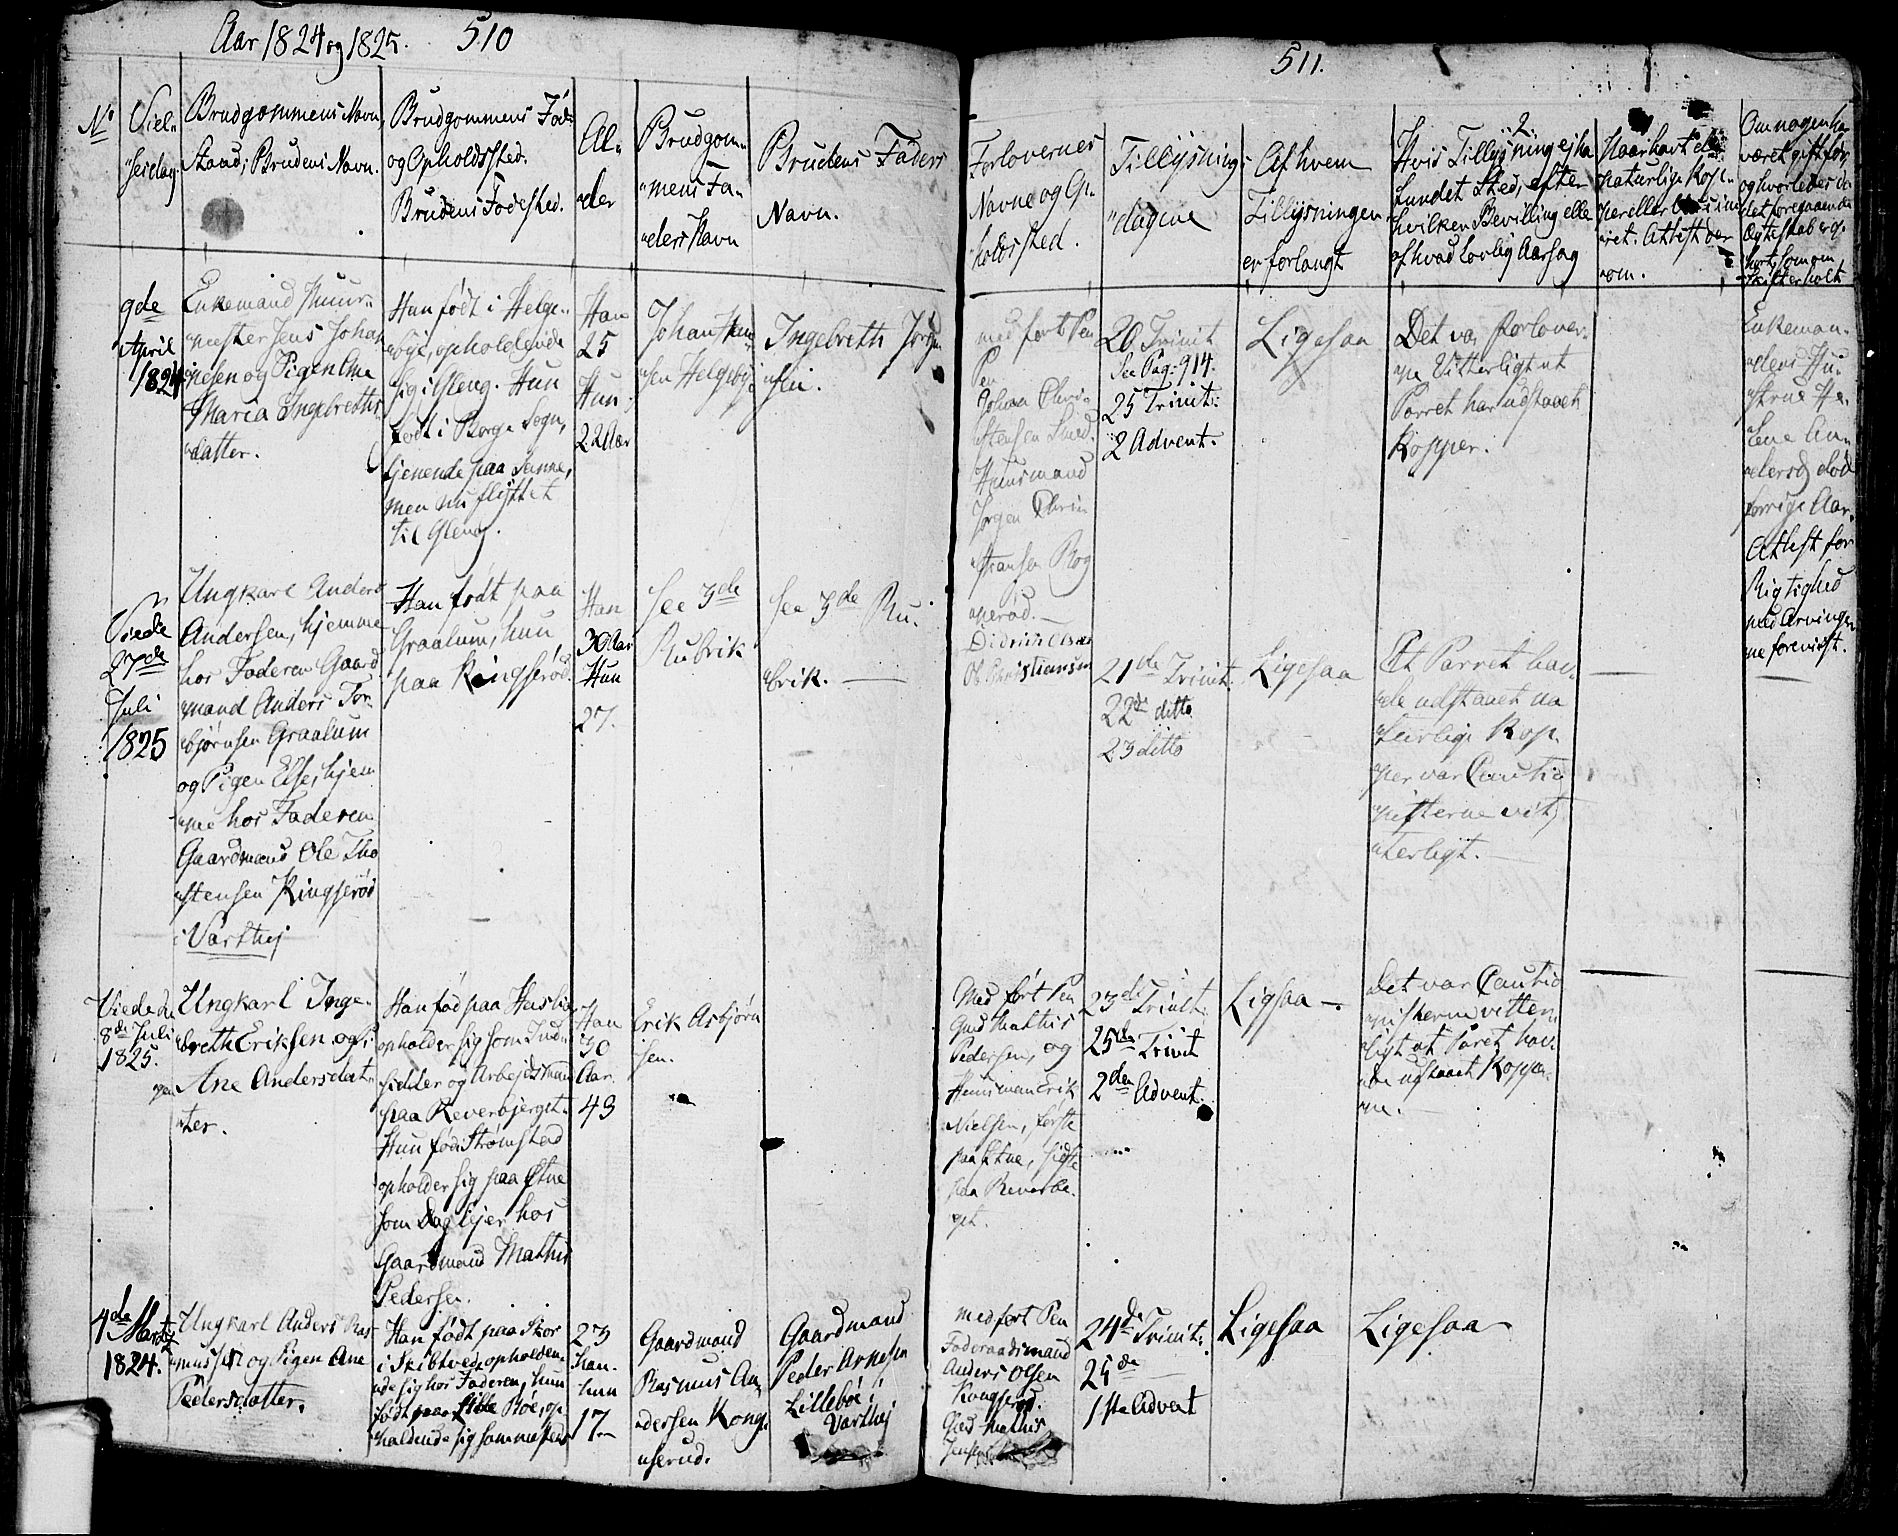 Aar 1824 og 1825. 510
No
Viel-
seidag
Brudgommens Navn,
Stand; Brudens Navn.
Brudgommens Fød-
og Opholdssted.
Brudens Fødested.
Al-
der
Brudgom-
mens Fa-
ders Navn
Brudens Faders
Navn.
9de
April
1824
Enkemand Muur-
mester Jens Johan
nesen og Pigen Ane
Maria Ingebreths
datter.
Han født i Helge-
bye, opholdende
sig i Gleng. Hun
født i Borge Sogn,
tjenende paa
men nu flyttet
til Gleng.
Han
25
Hun
22 Aar
Johan
sen Helgebye
Ingebreth Jørgen
sen.
Viede
27de
Juli
1825
Ungkarl Anders
Andersen, hjemme
hos Faderen Gaard
mand Anders Tor-
bjørnsen Graalum
og Pigen Else, hjem
me hos Faderen
Gaardmand Ole Tho
stensen Kingserød
i Varthej
Han født paa
Graalum, hun
paa Kingserød.
Han
30 Aar
Hun
27.
See 3de
Rubrik
See 3de Ru-
brik.
Viede den
8de Juli
1825.
Ungkarl Inge-
breth Eriksen og Pi
gen
Ane Andersdat-
ter.
Han fød paa
opholder sig som Ind-
sidder og Arbejdsmand
paa Reverbjerget.
Hun fød i Strømstad
opholder sig paa
som Daglejer hos
Gaardmand Mathis
Pedersen.
Han
30
Aar
43
Erik Asbjørn
sen.
4de Marts
1824.
Ungkarl Anders Ras-
mussen og Pigen Ane
Pedersdatter.
Han født paa Skor
i Skibtvedt, opholden-
de sig hos Faderen, hun
født paa Lille Bøe, op
holdende sig sammesteds
23
han-
hun
17-
Gaardmand
Rasmus An-
dersen Kong-
serud.
Gaardmand
Peder Arnesen
Lillebøe i
Varthej
511.
Forlovernes
Navne og Op-
holdssted.
Tillysnings-
dagene
Af hvem
Tillysningen
er forlangt
2
Hvis Tillysning ej ha
fundet Sted, efter
hvilken Bevilling elle
af hvad lovlig Aarsag
Haar havt de
naturlige Kop-
per eller
eret. Attest der
om.
Om nogen har
været gift før,
og hvorledes
det foregaaende
Ægteskab er op-
hørt, som om
Skifter holdt
med ført Pen
Johan Chri-
stensen Smed.
Huusmand
Jørgen Chri-
stiansen Rog
nerød.
Ol. Christiansen
20 Trinit
See Pag: 914.
25 Trinit:
2 Advent.
Ligesaa
Det var Forlover-
ne Vitterligt at
Parret har udstaaet
Kopper.
Enkeman-
dens Hu-
strue He-
lene An-
dersd. død
forrige Aar.
Attest for
Rigtighed
med Arvinger
ne foreviist.
21de Trinit.
22de ditto
23 ditto
Ligesaa
At Parret hav-
de udstaaet na
turlige Kop-
per var Cautio
nisterne vit-
terligt.
Med ført Pen
Gmd Mathis
Pedersen, og
Huusman Erik
Nielsen, første
paa, sidste
paa Reverbe-
get.
23de Trinit.
25de Trinit
2den Advent.
Ligsaa -
Det var Cautio
nisterne vitter-
ligt at Paret hav-
de udstaaet Kopper-
ne.
med ført Pen
Føderaadsmand
Anders Olsen
Kongserød.
Gmd Mathis
Jensen
24de Trinit:
25de
1ste Advent
Ligesaa
Ligesaa